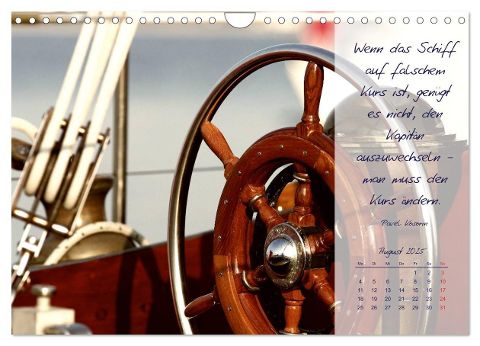 Wenn das Schiff
auf falschem
Kurs ist, genügt
es nicht, den
Kapitän
auszuwechseln –
man muss den
Kurs ändern.
Pavel Kosorin
August 2025
Mo Di Mi Do Fr Sa So
1 2 3
4 5 6 7 8 9 10
11 12 13 14 15 16 17
18 19 20 21 22 23 24
25 26 27 28 29 30 31